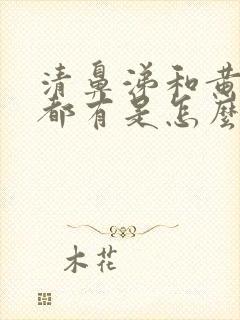 清鼻涕和黄
都有是怎麼
木花